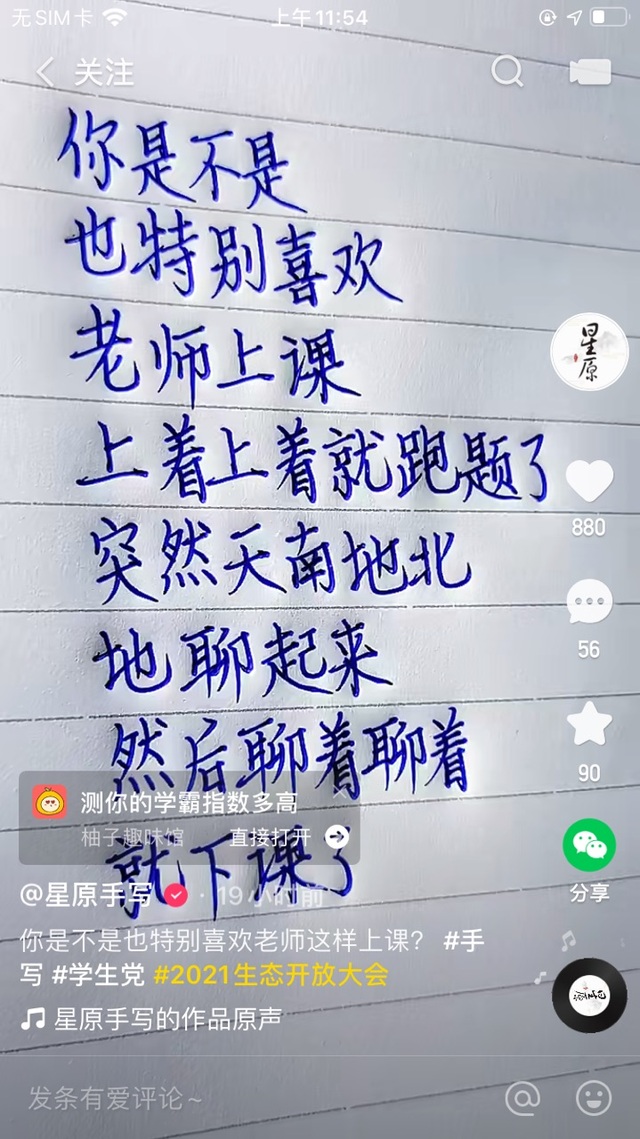 无SIM卡 上午11:54
关注
你是不是
也特别喜欢
老师上课
上着上着就跑题了
突然天南地北
地聊起来
然后聊着聊着
就下课了
星原
880
56
90
分享
测你的学霸指数多高
柚子趣味馆 直接打开
@星原手写 · 19小时前
你是不是也特别喜欢老师这样上课？ #手
写 #学生党 #2021生态开放大会
星原手写的作品原声
发条有爱评论~